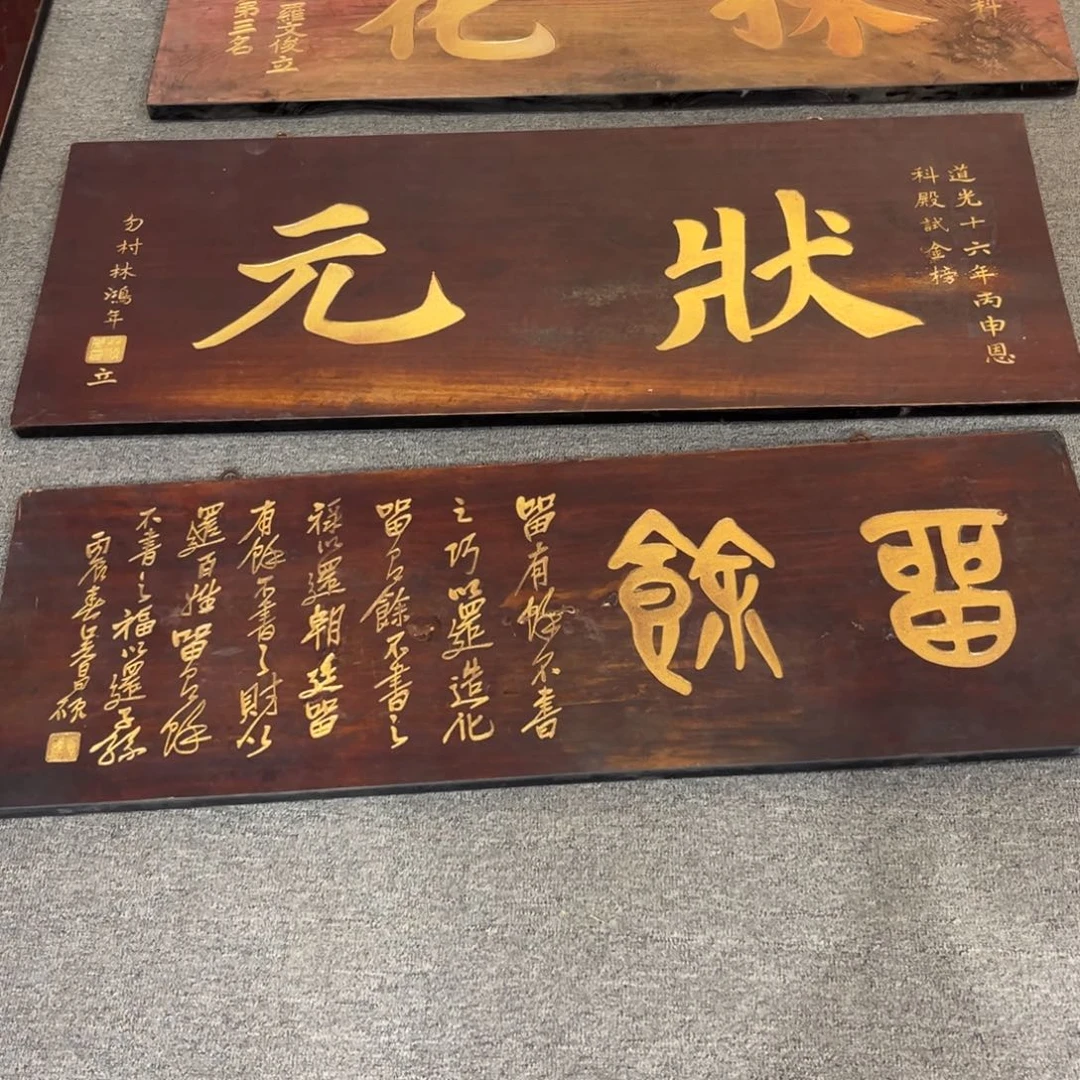 科
羅文俊立
第三名
道光十六年丙申恩
科殿試金榜
狀元
勿村林鴻年
立
留餘
留有餘不盡
之巧以還造化
留有餘不盡之
祿以還朝廷留
有餘不盡之財以
還百姓留有餘
不盡之福以還子孫
丙辰春吳昌碩